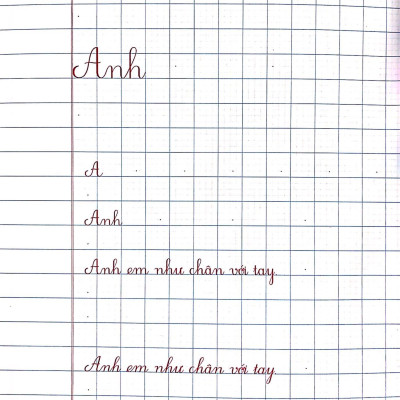 Anh
A
Anh
Anh em như chân với tay.
Anh em như chân với tay.